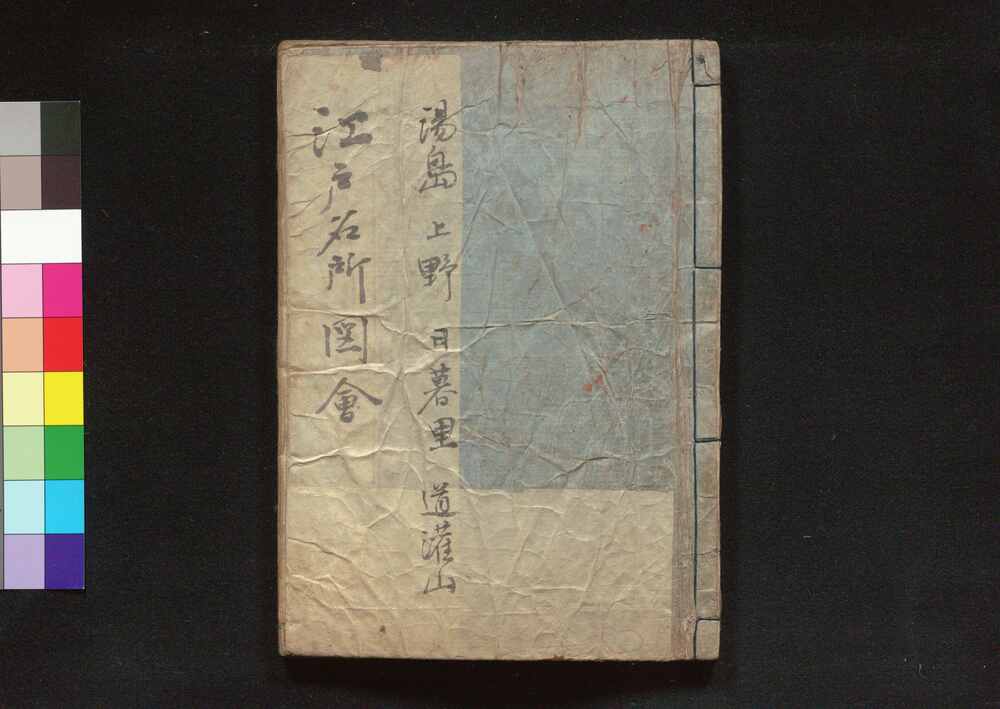 湯島 上野 日暮里 道灌山
江戸名所圖會